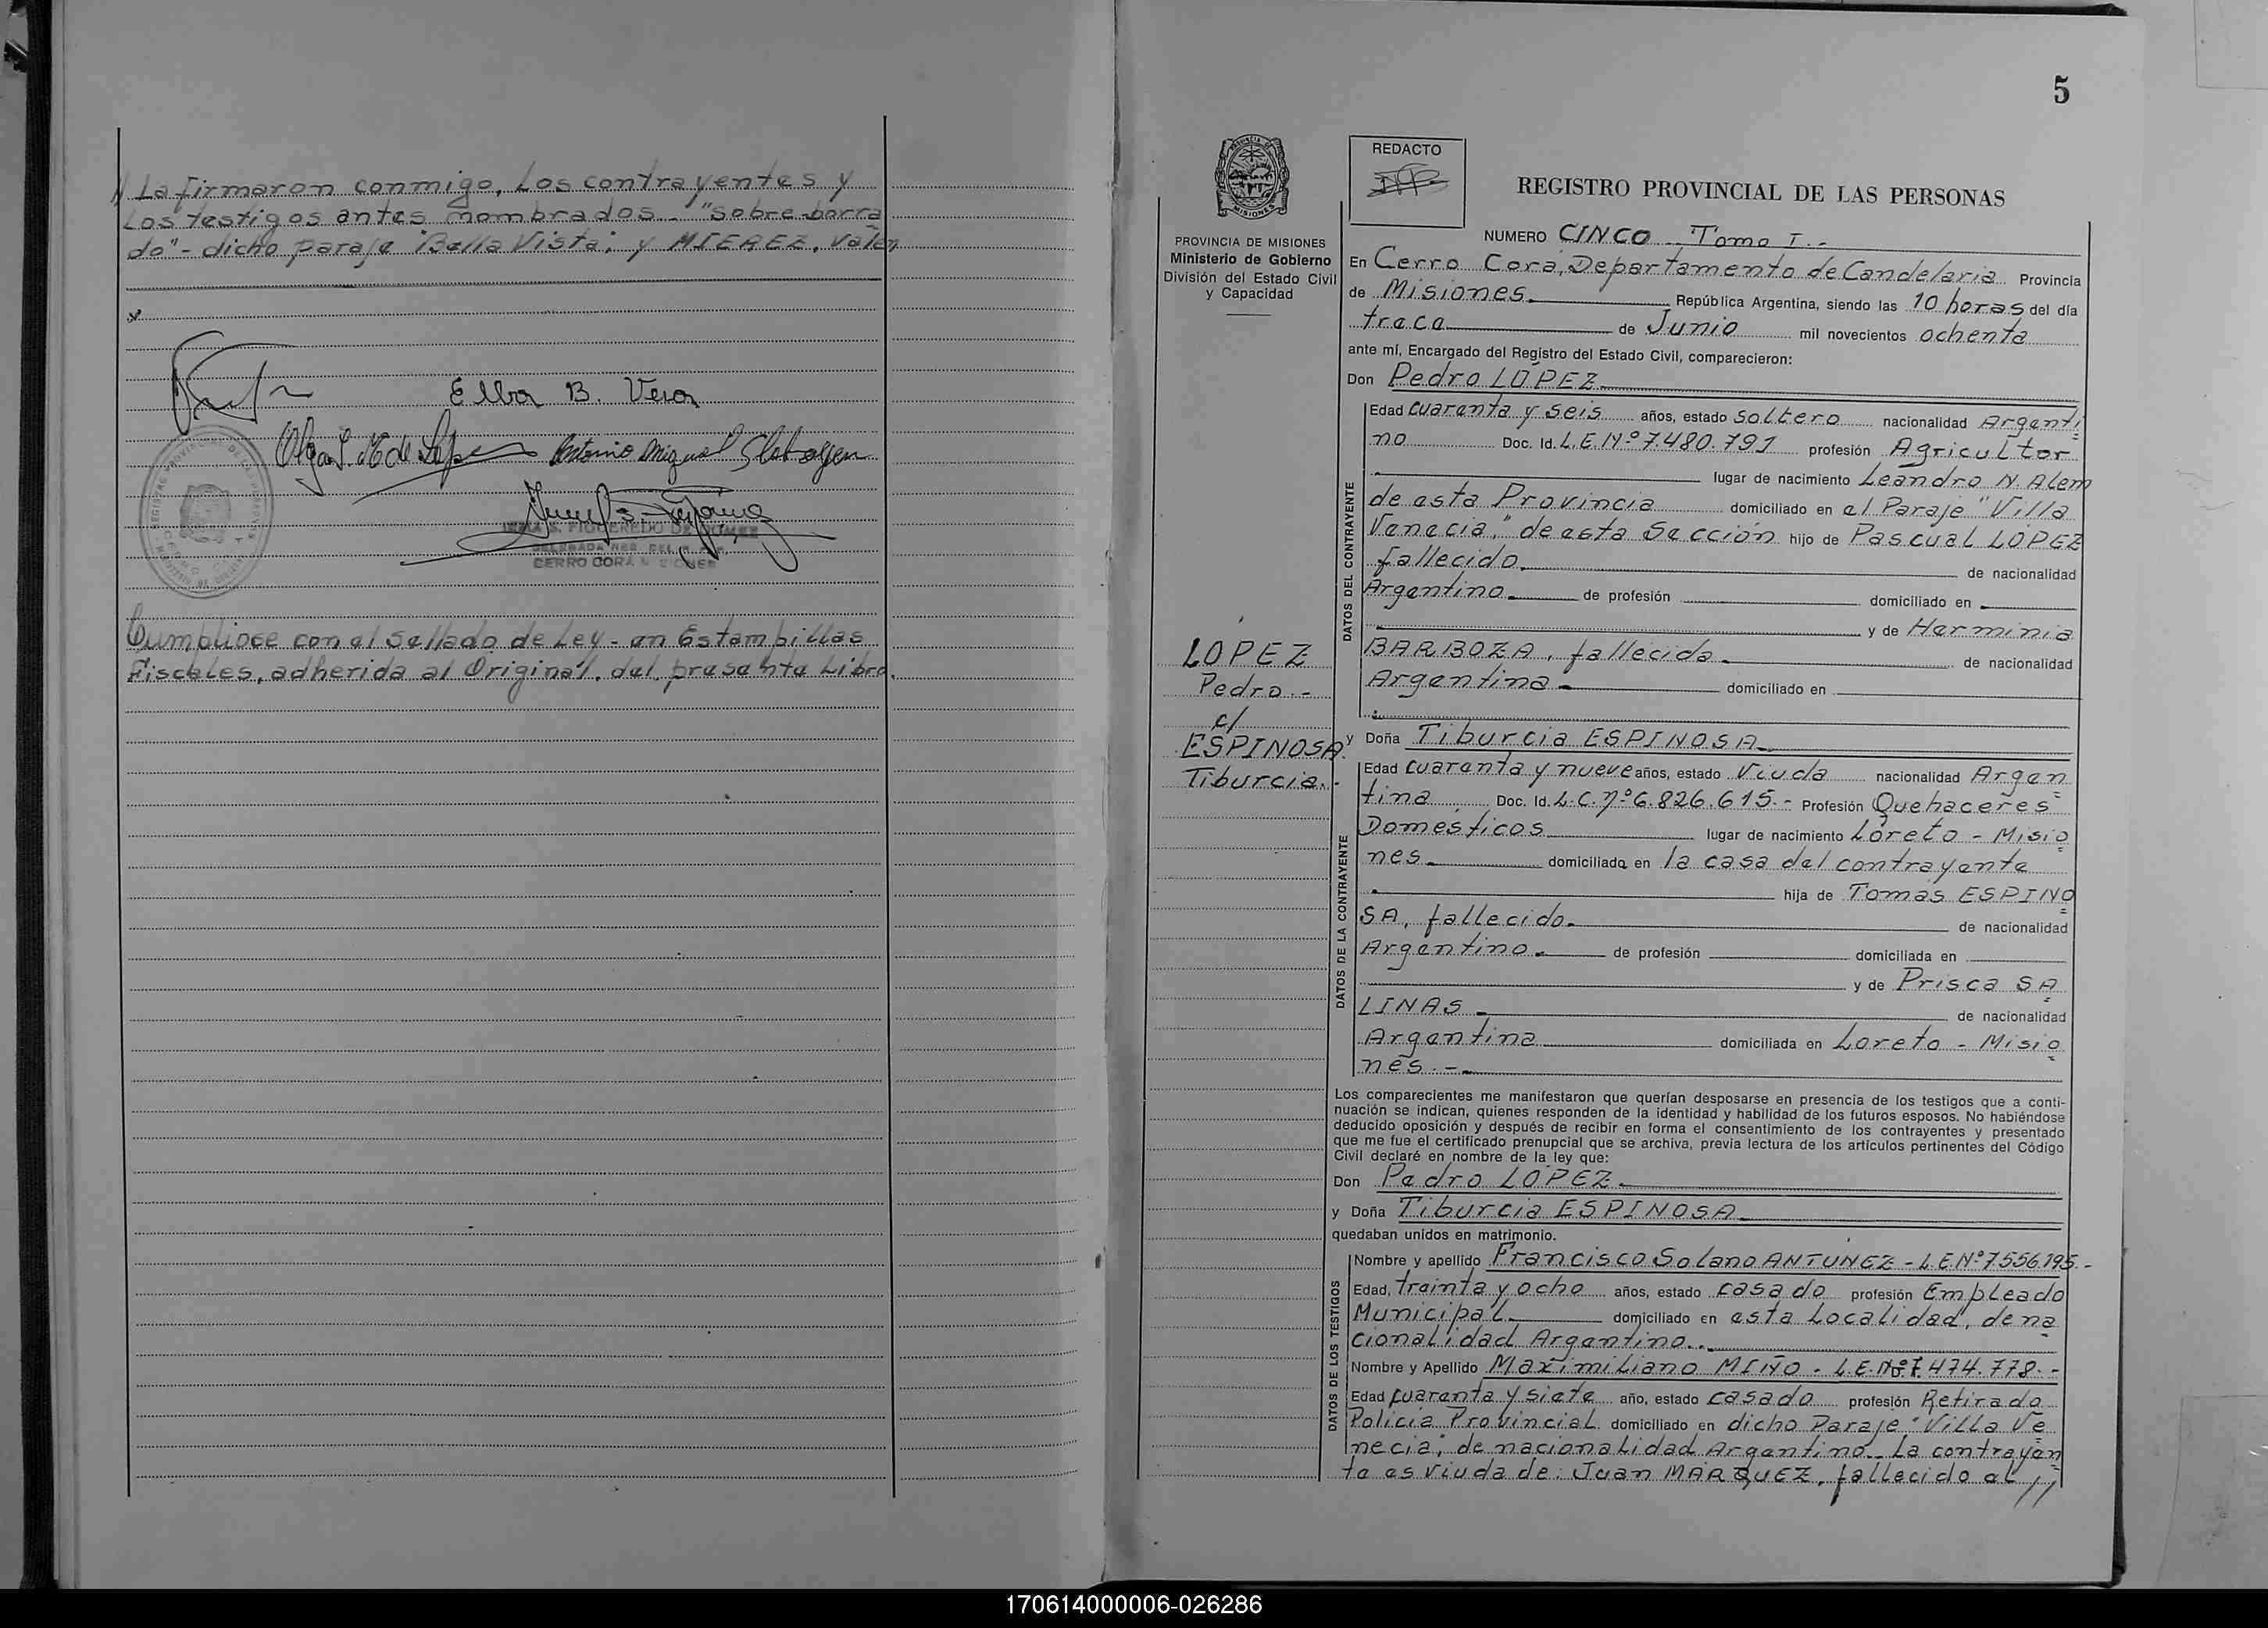 // La firmaron conmigo, Los contrayentes y
Los testigos antes nombrados.- "sobre borra
do"- dicho paraje "Bella Vista", y MIEREZ, Valen
Elba B. Vera
Olga de López Antonio Miguel
FIGUEREDO DE
CERRO CORA MISIONES
Cumpliose con el sellado de Ley- en Estampillas
Fiscales, adherida al Original, del presente Libro.
5
PROVINCIA DE MISIONES
Ministerio de Gobierno
División del Estado Civil
y Capacidad
LOPEZ
Pedro.-
c/
ESPINOSA
Tiburcia.-
REDACTO
REGISTRO PROVINCIAL DE LAS PERSONAS
NUMERO CINCO Tomo I.-
En Cerro Corá, Departamento de Candelaria Provincia
de Misiones. República Argentina, siendo las 10 horas del día
trece de Junio mil novecientos ochenta
ante mí, Encargado del Registro del Estado Civil, comparecieron:
Don Pedro LOPEZ
DATOS DEL CONTRAYENTE
Edad cuarenta y seis años, estado soltero nacionalidad Argenti
no Doc. Id. L.E.Nº 7.480.791 profesión Agricultor
lugar de nacimiento Leandro N. Alem
de esta Provincia domiciliado en el Paraje "Villa
Venecia," de esta Sección hijo de Pascual LOPEZ
fallecido. de nacionalidad
Argentino de profesión domiciliado en
y de Herminia
BARBOZA, fallecida de nacionalidad
Argentina domiciliado en
y Doña Tiburcia ESPINOSA
DATOS DE LA CONTRAYENTE
Edad cuarenta y nueve años, estado Viuda nacionalidad Argen
tina Doc. Id. L.C.nº 6.826.615.- Profesión Quehaceres
Domesticos lugar de nacimiento Loreto - Misio
nes domiciliada en la casa del contrayente
hija de Tomás ESPINO
SA, fallecido. de nacionalidad
Argentino. de profesión domiciliada en
y de Prisca SA
LINAS de nacionalidad
Argentina domiciliada en Loreto - Misio
nes.-
Los comparecientes me manifestaron que querían desposarse en presencia de los testigos que a conti-
nuación se indican, quienes responden de la identidad y habilidad de los futuros esposos. No habiéndose
deducido oposición y después de recibir en forma el consentimiento de los contrayentes y presentado
que me fue el certificado prenupcial que se archiva, previa lectura de los artículos pertinentes del Código
Civil declaré en nombre de la ley que:
Don Pedro LOPEZ
y Doña Tiburcia ESPINOSA
quedaban unidos en matrimonio.
DATOS DE LOS TESTIGOS
Nombre y apellido Francisco Solano ANTUNEZ - L.E.Nº 7.556.195.-
Edad, treinta y ocho años, estado casado profesión Empleado
Municipal domiciliado en esta Localidad, de na
cionalidad Argentino..
Nombre y Apellido Maximiliano MIÑO - L.E.Nº 7.474.778.-
Edad cuarenta y siete año, estado casado profesión Retirado
Policia Provincial domiciliado en dicho Paraje "Villa Ve
necia", de nacionalidad Argentino.- La contrayen
te es viuda de: Juan MARQUEZ, fallecido el //
170614000006-026286